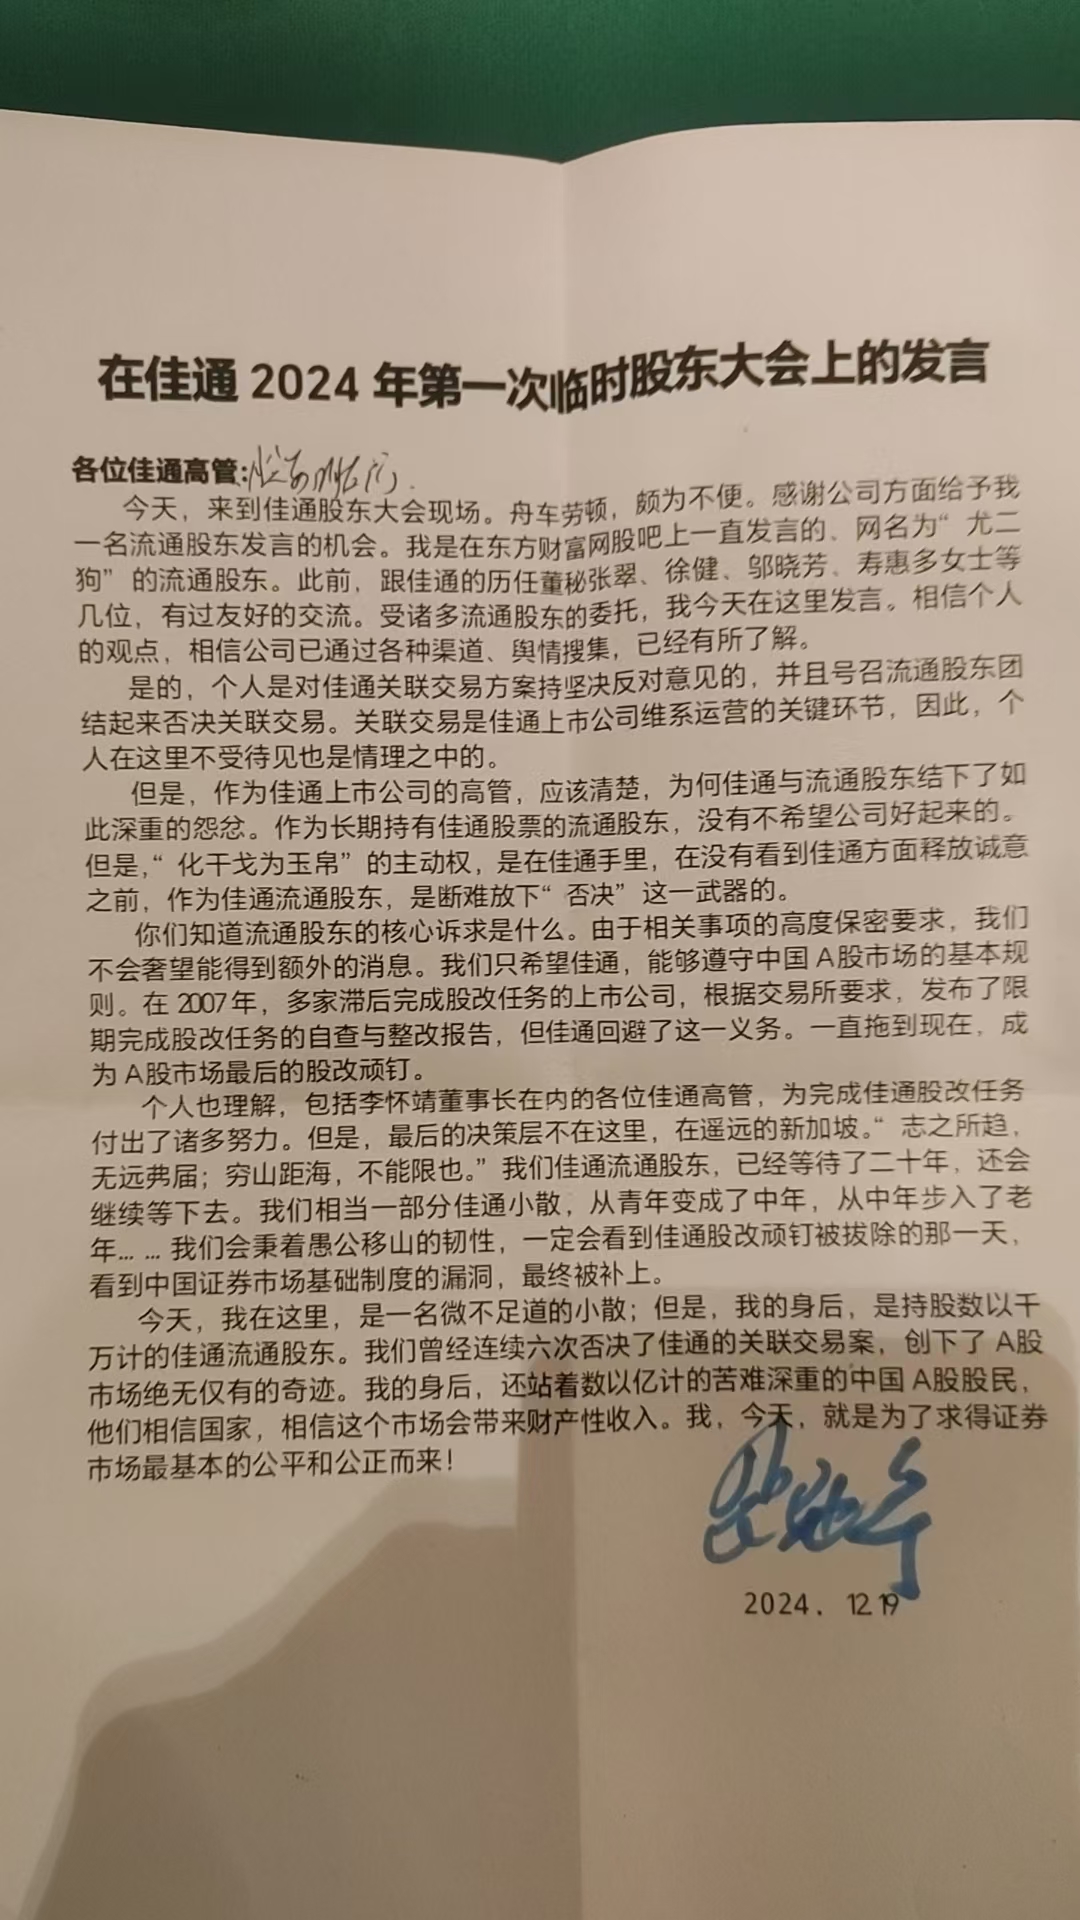 在佳通 2024 年第一次临时股东大会上的发言
各位佳通高管:
今天，来到佳通股东大会现场。舟车劳顿，颇为不便。感谢公司方面给予我
一名流通股东发言的机会。我是在东方财富网股吧上一直发言的、网名为“尤二
狗”的流通股东。此前，跟佳通的历任董秘张翠、徐健、邬晓芳、寿惠多女士等
几位，有过友好的交流。受诸多流通股东的委托，我今天在这里发言。相信个人
的观点，相信公司已通过各种渠道、舆情搜集，已经有所了解。
是的，个人是对佳通关联交易方案持坚决反对意见的，并且号召流通股东团
结起来否决关联交易。关联交易是佳通上市公司维系运营的关键环节，因此，个
人在这里不受待见也是情理之中的。
但是，作为佳通上市公司的高管，应该清楚，为何佳通与流通股东结下了如
此深重的怨忿。作为长期持有佳通股票的流通股东，没有不希望公司好起来的。
但是，“化干戈为玉帛”的主动权，是在佳通手里，在没有看到佳通方面释放诚意
之前，作为佳通流通股东，是断难放下“否决”这一武器的。
你们知道流通股东的核心诉求是什么。由于相关事项的高度保密要求，我们
不会奢望能得到额外的消息。我们只希望佳通，能够遵守中国 A股市场的基本规
则。在 2007年，多家滞后完成股改任务的上市公司，根据交易所要求，发布了限
期完成股改任务的自查与整改报告，但佳通回避了这一义务。一直拖到现在，成
为 A股市场最后的股改顽钉。
个人也理解，包括李怀靖董事长在内的各位佳通高管，为完成佳通股改任务
付出了诸多努力。但是，最后的决策层不在这里，在遥远的新加坡。“志之所趋，
无远弗届；穷山距海，不能限也。”我们佳通流通股东，已经等待了二十年，还会
继续等下去。我们相当一部分佳通小散，从青年变成了中年，从中年步入了老
年… …我们会秉着愚公移山的韧性，一定会看到佳通股改顽钉被拔除的那一天，
看到中国证券市场基础制度的漏洞，最终被补上。
今天，我在这里，是一名微不足道的小散；但是，我的身后，是持股数以千
万计的佳通流通股东。我们曾经连续六次否决了佳通的关联交易案，创下了 A股
市场绝无仅有的奇迹。我的身后，还站着数以亿计的苦难深重的中国 A股股民，
他们相信国家，相信这个市场会带来财产性收入。我，今天，就是为了求得证券
市场最基本的公平和公正而来！
2024. 12.19